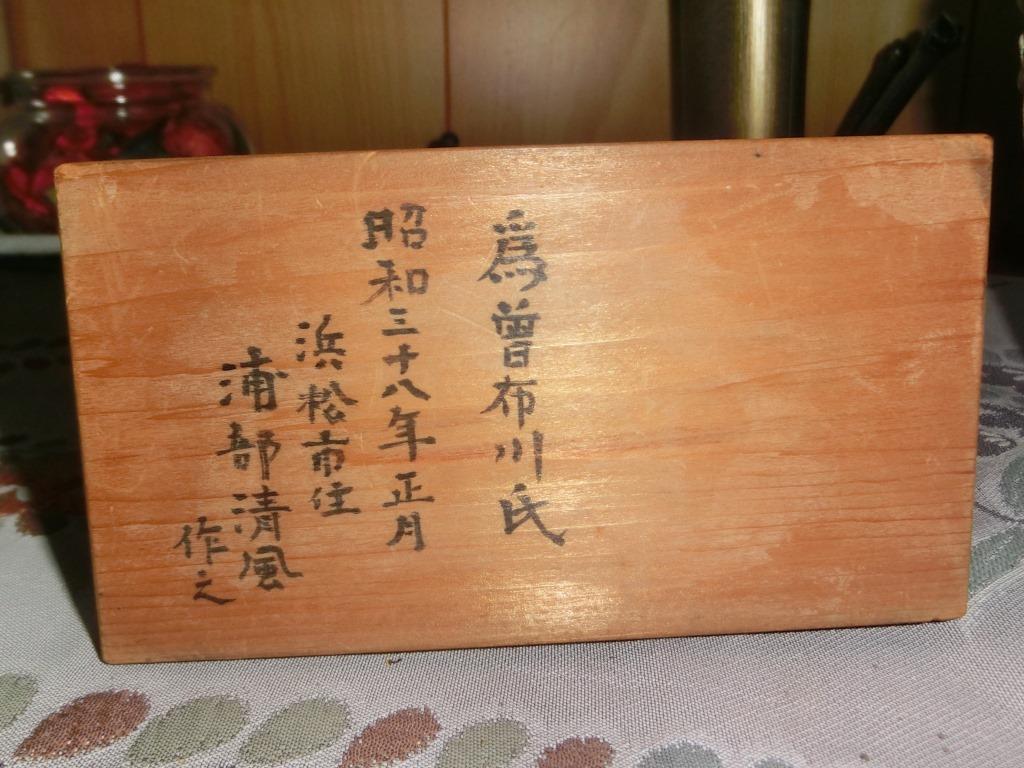 爲曽布川氏
昭和三十八年正月
浜松市住
浦部清風
作之